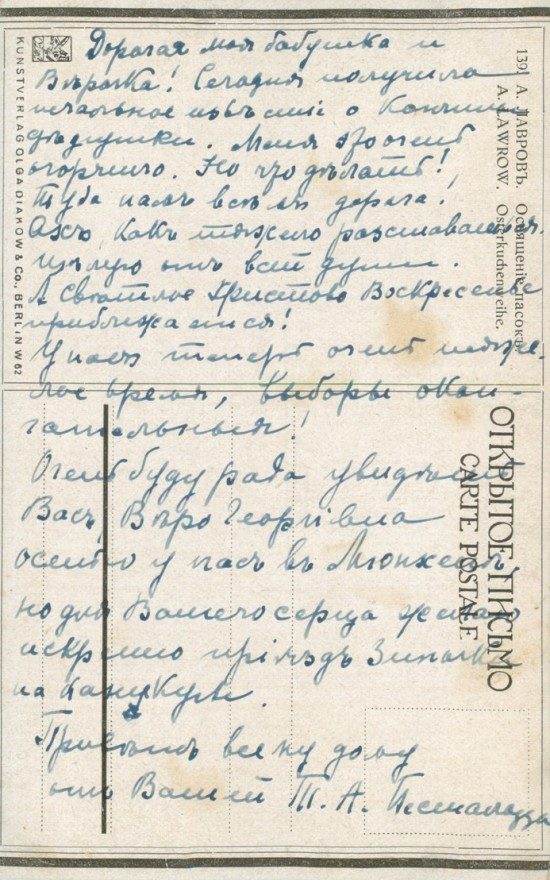 Дорогая моя бабушка и
Вѣрочка! Сегодня получила
печальное извѣстіе о кончинѣ
дѣдушки. Меня это очень
огорчило. Но что дѣлать!
Туда намъ всѣмъ дорога!
Ахъ, какъ тяжело разставаться.
Цѣлую отъ всей души.
А Свѣтлое Христово Воскресенье
приближается!
У насъ теперь очень тяже-
лое время, выборы окон-
чательныя!
Очень буду рада увидѣть
Васъ, Вѣро Георгіевна
осенью у насъ въ Мюнхенѣ,
но для Вашего сердца желаю
искренно пріѣздъ Зиночки
на каникулы.
Привѣтъ всему дому
отъ Вашей Т. А. Песталоцца
KUNSTVERLAG OLGA DIAKOW & Co., BERLIN W 62
139. А. ЛАВРОВЪ. Освященіе пасокъ.
A. LAWROW. Osterkuchenweihe.
ОТКРЫТОЕ ПИСЬМО
CARTE POSTALE